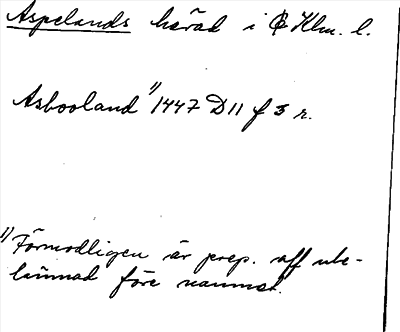 Aspelands härad i Klm. l.
Asbooland 1) 1447 D 11 f 3 r.
1) Förmodligen är prep. aff ute-
lämnad före namnet.